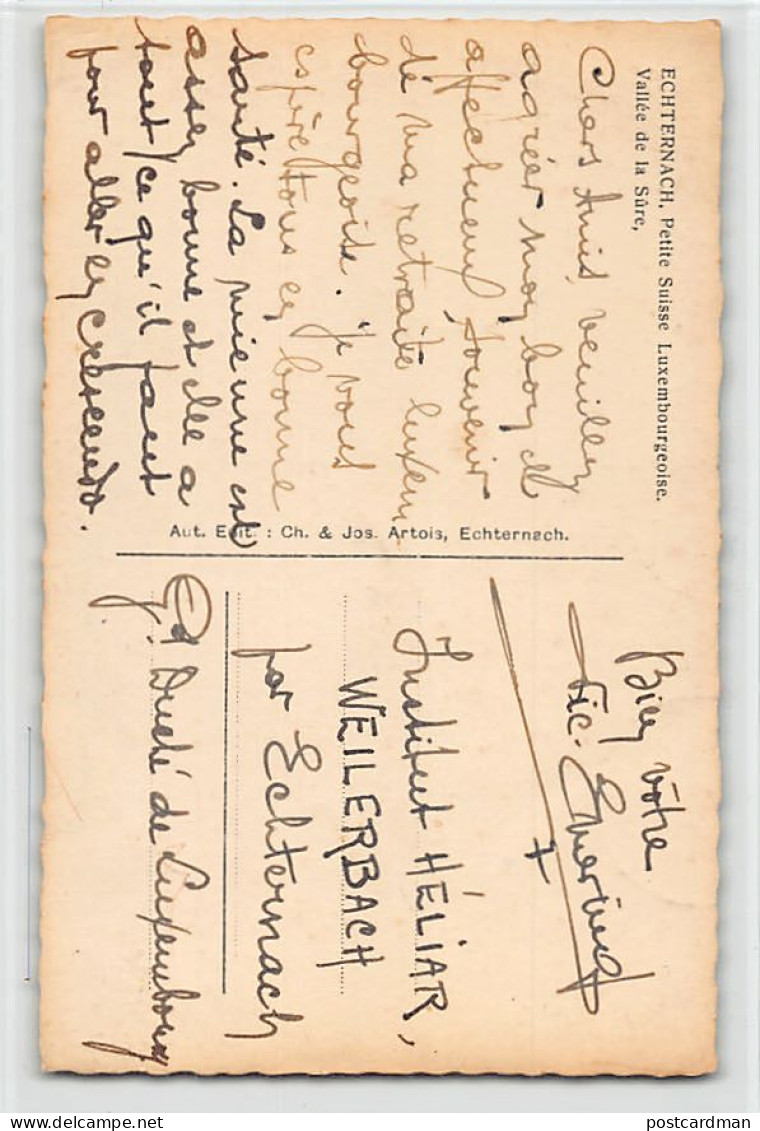 ECHTERNACH. Petite Suisse Luxembourgeoise.
Vallée de la Sûre,
Chers Amis, veuillez
agréer mon bon et
affectueux souvenir
de ma retraite luxem
bourgeoise. Je vous
espère tous en bonne
santé. La mienne est
assez bonne et elle a
tout ce qu'il faut
pour aller en crescendo.
Aut. Edit. : Ch. & Jos. Artois, Echternach.
Bien vôtre
Vic.
Institut HÉLIAR,
WEILERBACH
par Echternach
Gd Duché de Luxembourg
postcardman